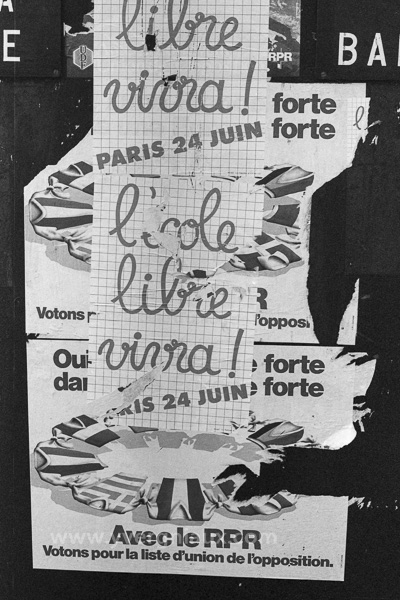 A
E
libre
RPR
BA
vivra !
forte
forte
PARIS 24 JUIN
l'école
libre
R
Votons p
l'opposi
vivra !
Oui
e forte
dan
e forte
RIS 24 JUIN
Avec le RPR
Votons pour la liste d'union de l'opposition.